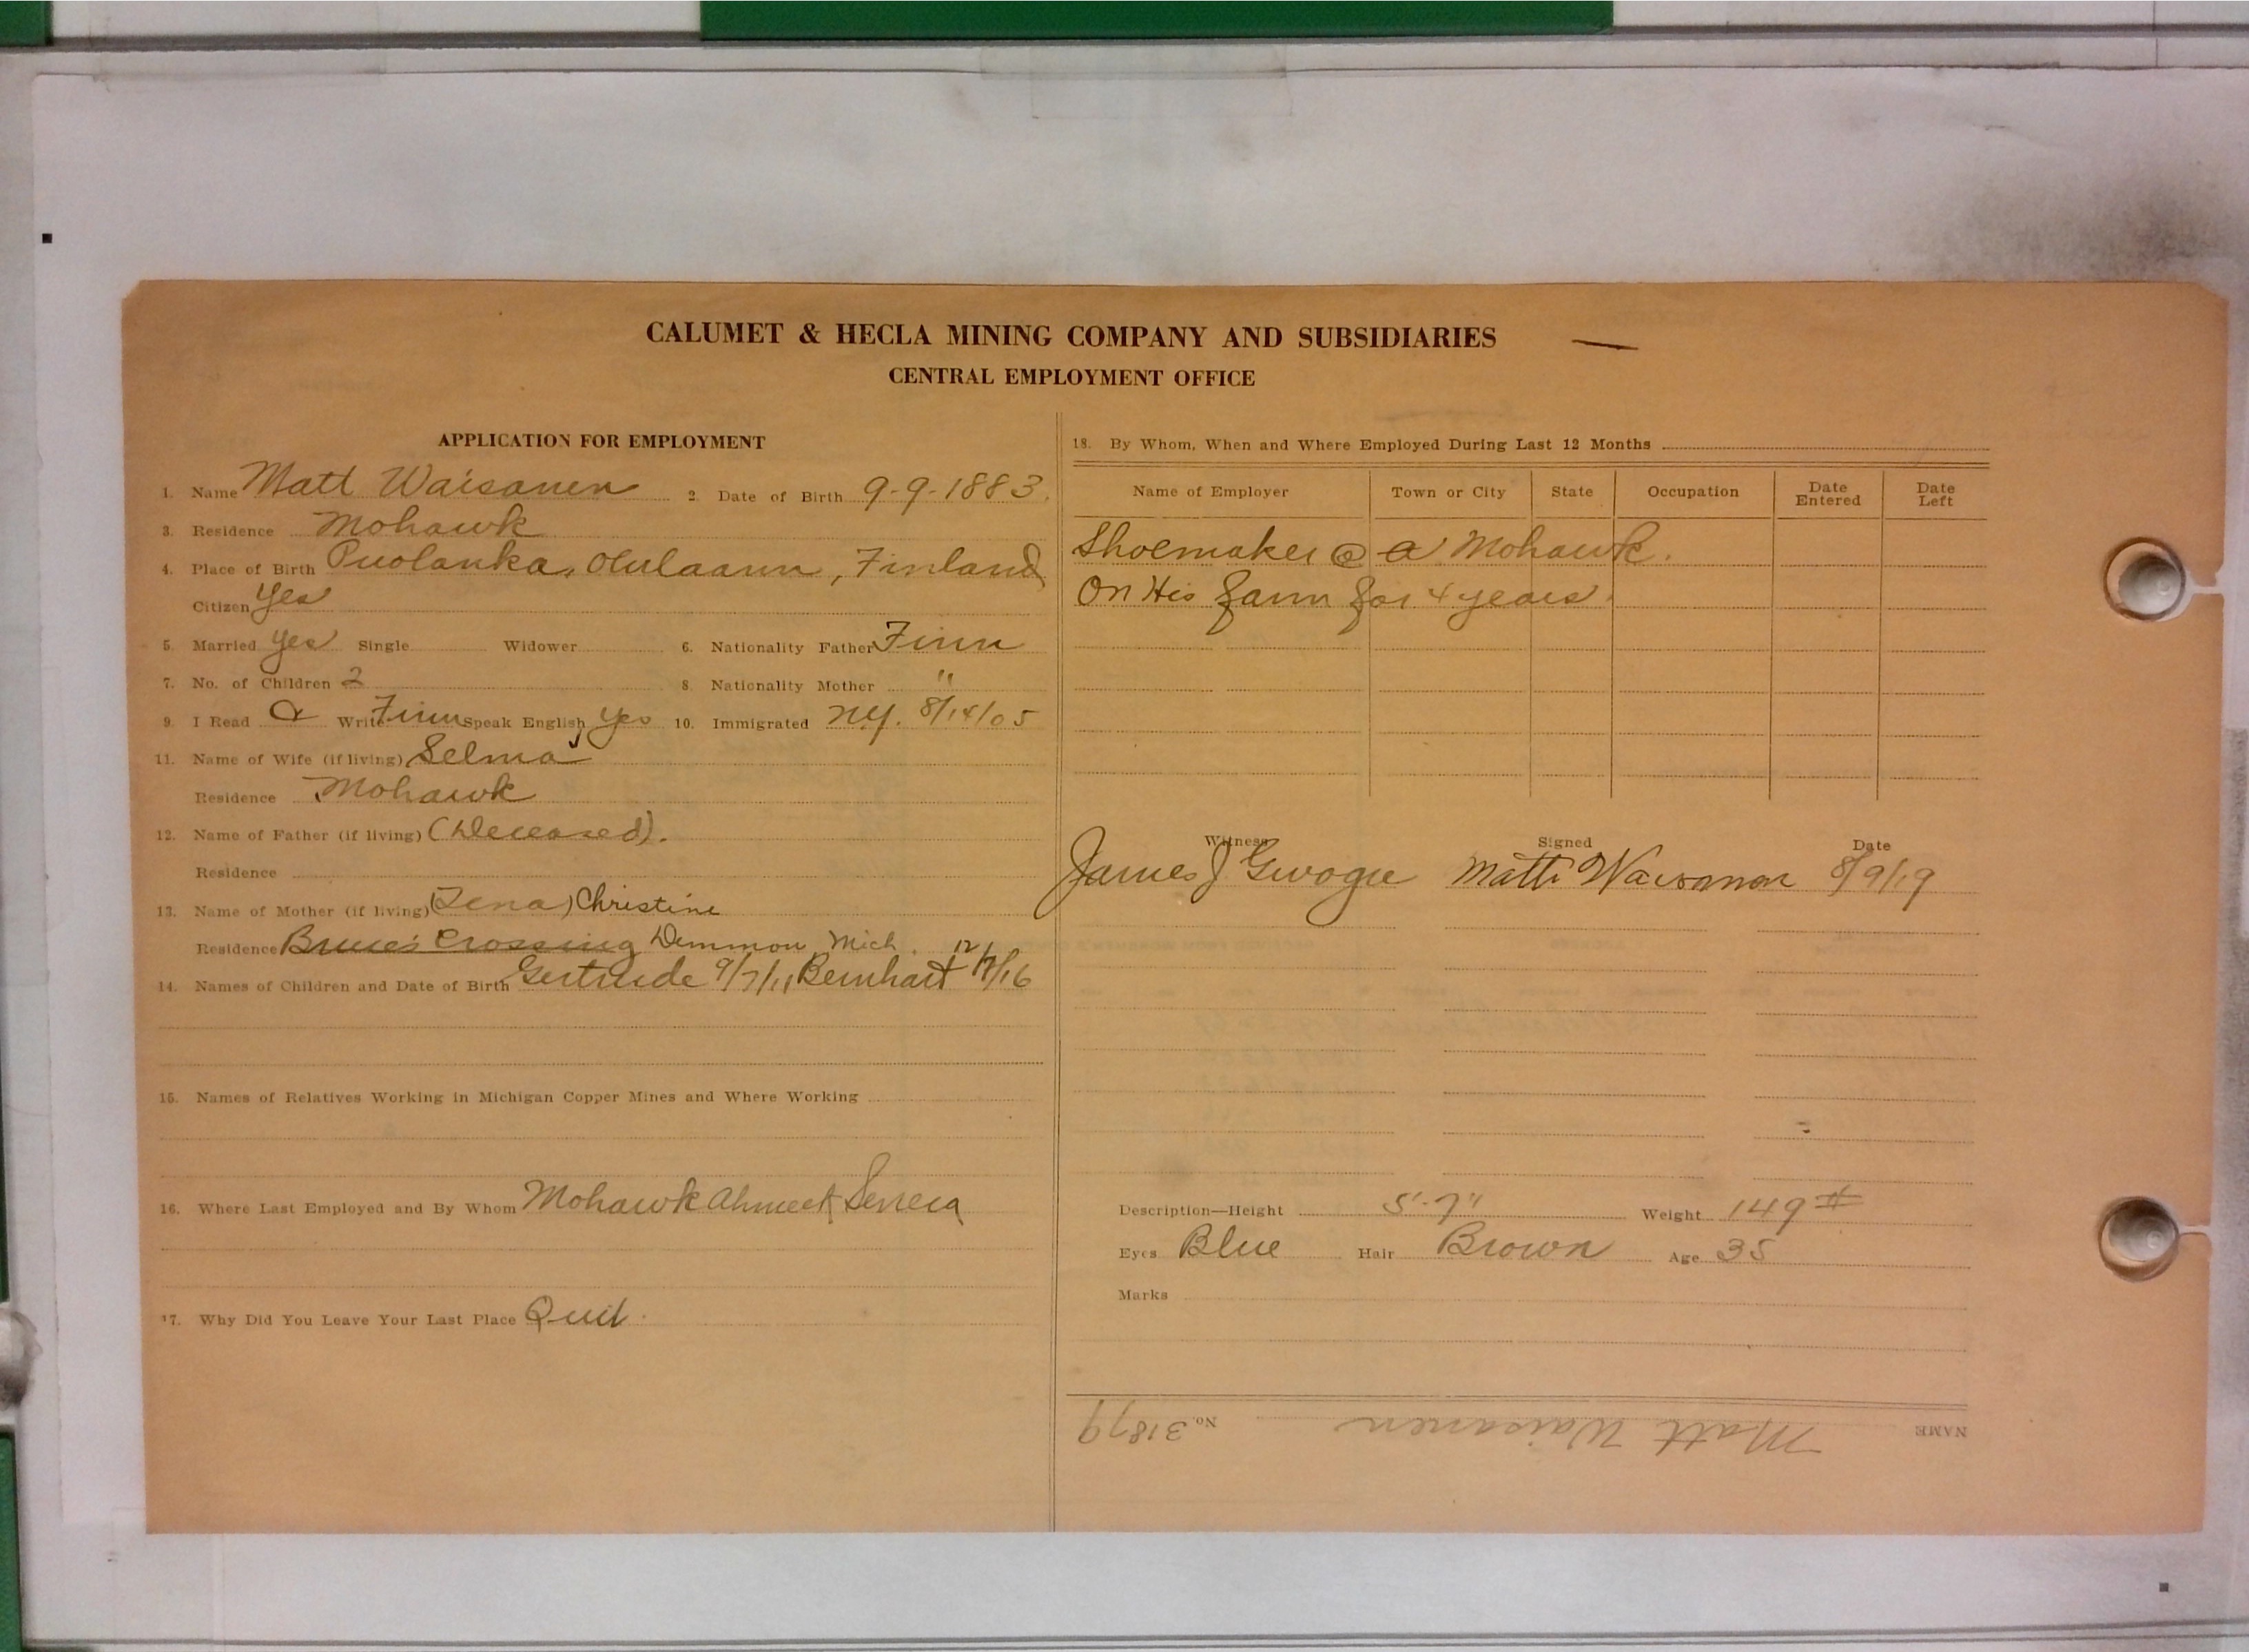 CALUMET & HECLA MINING COMPANY AND SUBSIDIARIES
CENTRAL EMPLOYMENT OFFICE
APPLICATION FOR EMPLOYMENT
1. Name Matt Waisanen 2. Date of Birth 9-9-1883.
3. Residence Mohawk
4. Place of Birth Puolanka, Olulaann, Finland
Citizen Yes
5. Married Yes Single Widower 6. Nationality Father Finn
7. No. of Children 2 8. Nationality Mother "
9. I Read & Write Finn Speak English Yes 10. Immigrated NY. 8/14/05
11. Name of Wife (if living) Selma
Residence Mohawk
12. Name of Father (if living) (Deceased).
Residence
13. Name of Mother (if living) (Lena) Christine
Residence Bruce's Crossing Demmon, Mich.
14. Names of Children and Date of Birth Gertrude 9/7/11 Bernhart 12/7/16
15. Names of Relatives Working in Michigan Copper Mines and Where Working
16. Where Last Employed and By Whom Mohawk Ahmeek Seneca
17. Why Did You Leave Your Last Place Quit.
18. By Whom, When and Where Employed During Last 12 Months
Name of Employer Town or City State Occupation Date Entered Date Left
Shoemaker @ a Mohawk.
On His farm for 4 years.
Witness Signed Date
James J Matti Waisanen 8/9/19
Description—Height 5'-7" Weight 149 #
Eyes Blue Hair Brown Age 35
Marks
NAME Matt Waisanen No. 31879